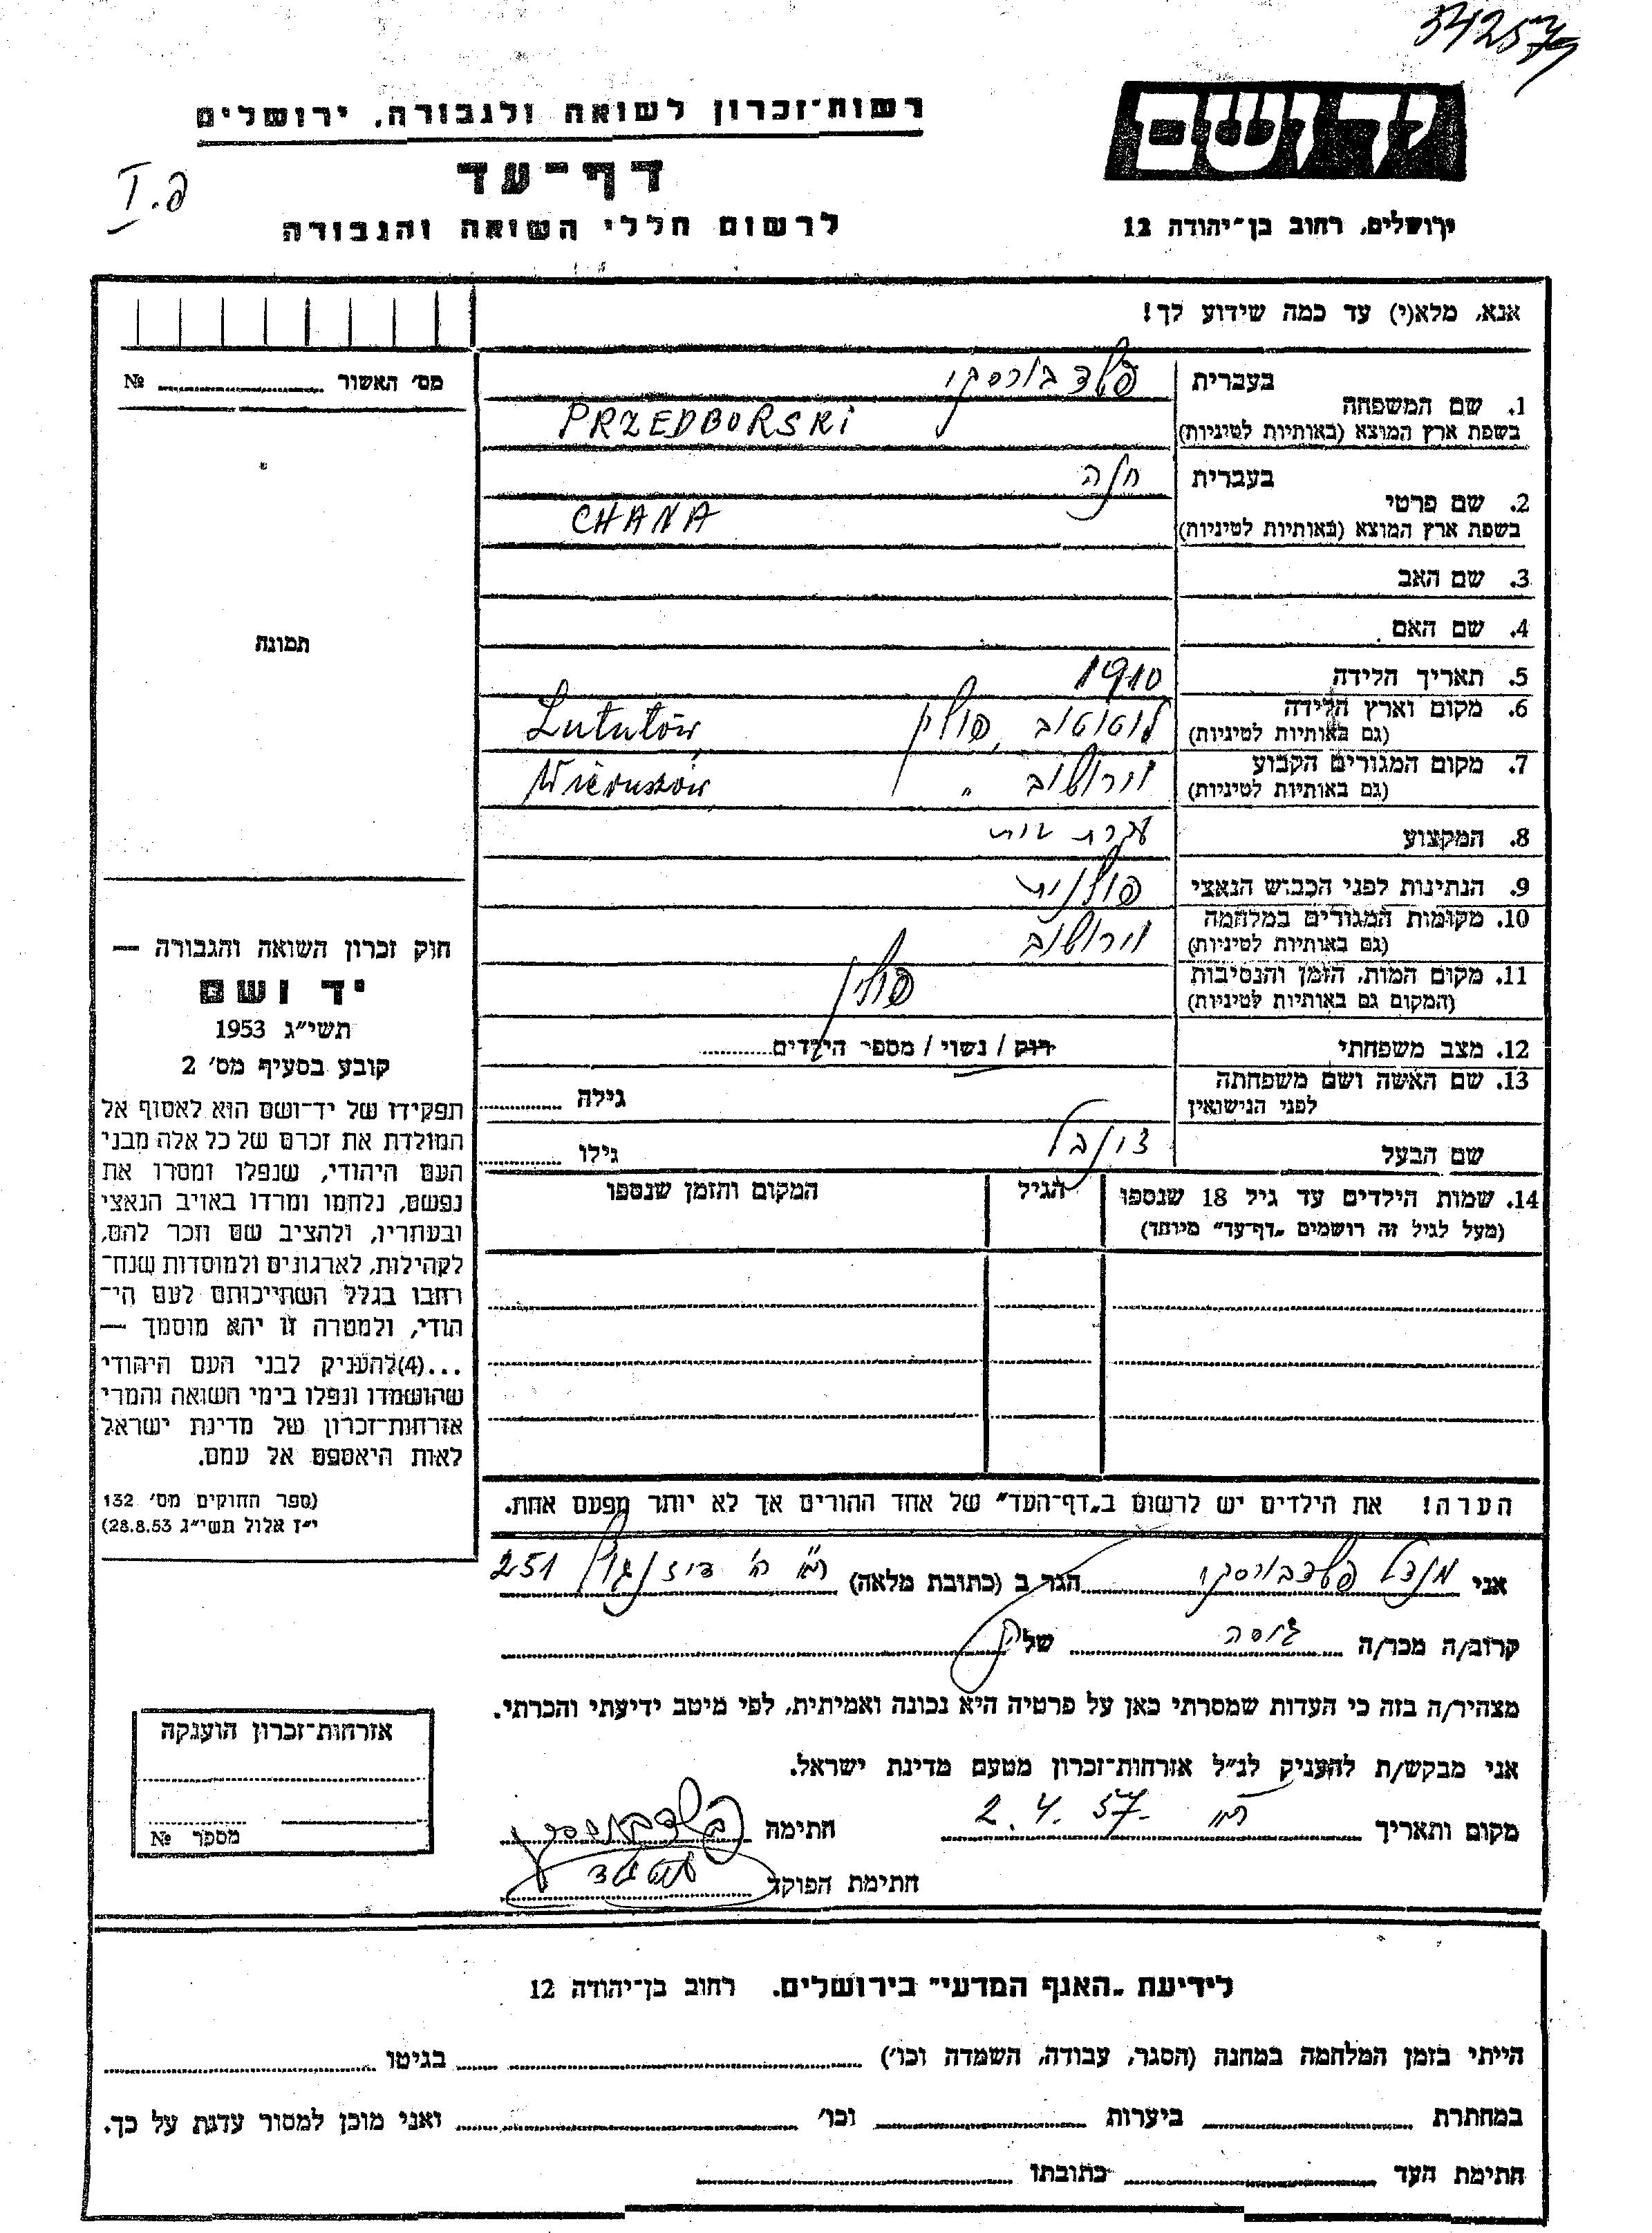 342579
רשות־זכרון לשואה ולגבורה, ירושלים
יד ושם
דף־עד
פ.I
לרשום חללי השואה והגבורה
ירושלים, רחוב בן־יהודה 12
אנא, מלא(י) עד כמה שידוע לך!
מס' האשור № ............
בעברית פשדבורסקי
1. שם המשפחה
בשפת ארץ המוצא (באותיות לטיניות) PRZEDBORSKI
בעברית חנה
2. שם פרטי
בשפת ארץ המוצא (באותיות לטיניות) CHANA
3. שם האב
4. שם האם
תמונה
5. תאריך הלידה 1910
6. מקום וארץ הלידה
(גם באותיות לטיניות) לוטוטוב, פולין Lututów
7. מקום המגורים הקבוע
(גם באותיות לטיניות) וירושוב " Wieruszów
8. המקצוע עקרת בית
9. הנתינות לפני הכבוש הנאצי פולנית
10. מקומות המגורים במלחמה
(גם באותיות לטיניות) וירושוב
11. מקום המות, הזמן והנסיבות
(המקום גם באותיות לטיניות) פולין
12. מצב משפחתי רוק / נשוי / מספר הילדים............
13. שם האשה ושם משפחתה
לפני הנישואין גילה ............
שם הבעל גילו ............
14. שמות הילדים עד גיל 18 שנספו
(מעל לגיל זה רושמים „דף־עד" מיוחד)
הגיל
המקום והזמן שנספו
חוק זכרון השואה והגבורה —
יד ושם
תשי"ג 1953
קובע בסעיף מס' 2
תפקידו של יד־ושם הוא לאסוף אל
המולדת את זכרם של כל אלה מבני
העם היהודי, שנפלו ומסרו את
נפשם, נלחמו ומרדו באויב הנאצי
ובעוזריו, ולהציב שם וזכר להם,
לקהילות, לארגונים ולמוסדות שנח־
רבו בגלל השתייכותם לעם הי־
הודי, ולמטרה זו יהא מוסמך —
...(4)להעניק לבני העם היהודי
שהושמדו ונפלו בימי השואה והמרי
אזרחות־זכרון של מדינת ישראל
לאות היאספם אל עמם.
(ספר החוקים מס' 132
י"ז אלול תשי"ג 28.8.53)
הערה! את הילדים יש לרשום ב„דף־העד" של אחד ההורים אך לא יותר מפעם אחת.
אני מנדל פשדבורסקי הגר ב (כתובת מלאה) דיזנגוף 251
קרוב/ה מכר/ה גיסה של
מצהיר/ה בזה כי העדות שמסרתי כאן על פרטיה היא נכונה ואמיתית, לפי מיטב ידיעתי והכרתי.
אני מבקש/ת להעניק לנ"ל אזרחות־זכרון מטעם מדינת ישראל.
מקום ותאריך 2.4.57 חתימה פשדבורסקי
חתימת הפוקד
אזרחות־זכרון הוענקה
מספר №
לידיעת „האגף המדעי" בירושלים, רחוב בן־יהודה 12
הייתי בזמן המלחמה במחנה (הסגר, עבודה, השמדה וכו') ............ בגיטו ............
במחתרת ............ ביערות ............ וכו' ............ ואני מוכן למסור עדות על כך.
חתימת העד ............ כתובתו ............